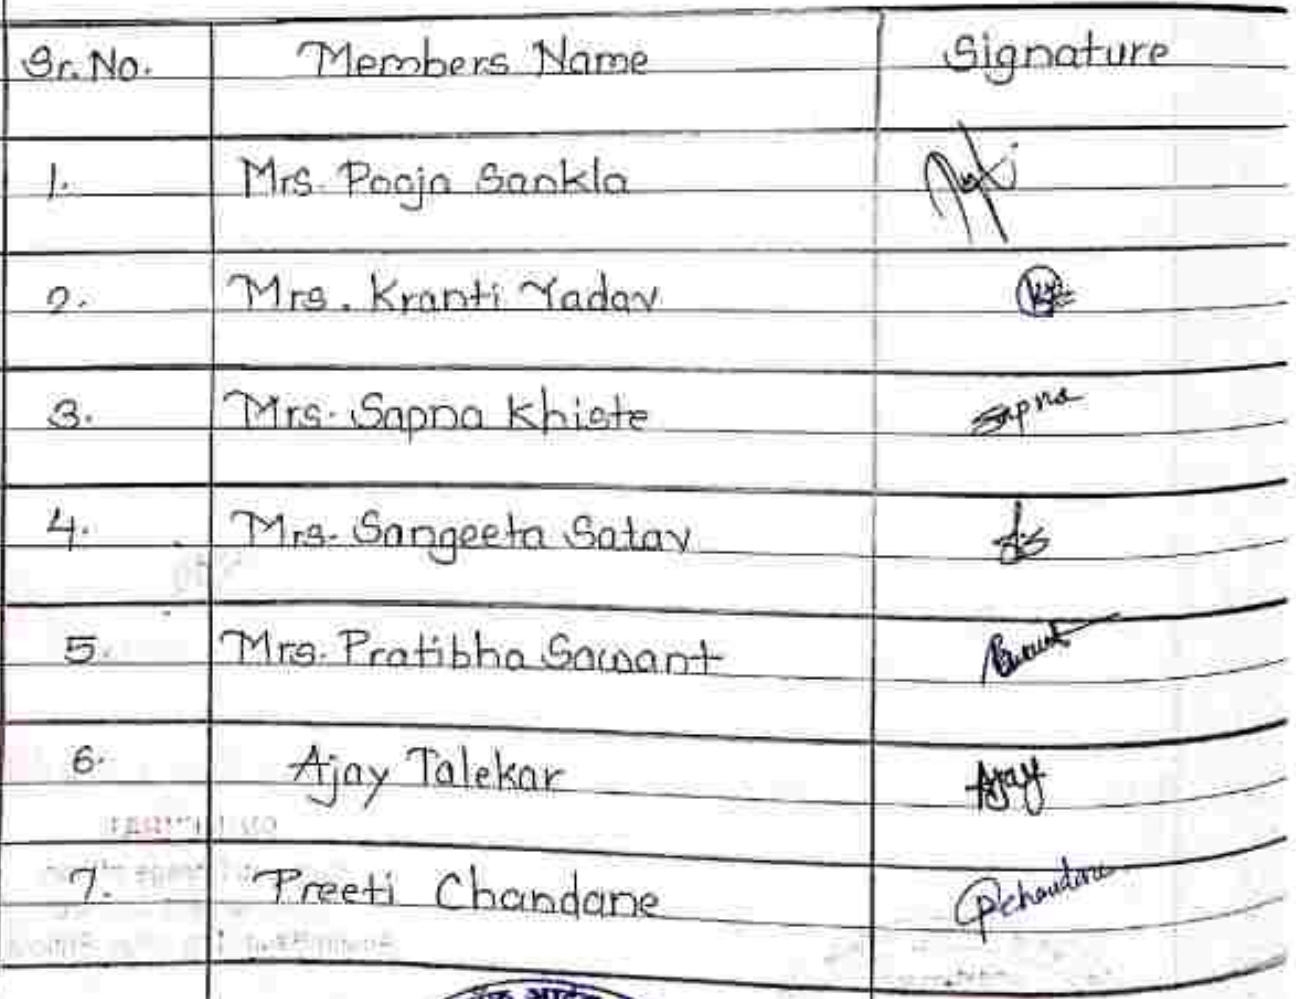 Sr. No. Members Name Signature
1. Mrs. Pooja Sankla
2. Mrs. Kranti Yadav
3. Mrs. Sapna Khiste Sapna
4. Mrs. Sangeeta Satav
5. Mrs. Pratibha Sawant
6. Ajay Talekar Ajay
7. Preeti Chandane Pchandane